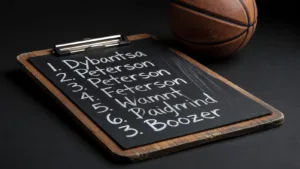 1. Dybantsa
2. Peterson
3. Peterson
4. Feterson
5. Wamnt
6.
3. Boozer